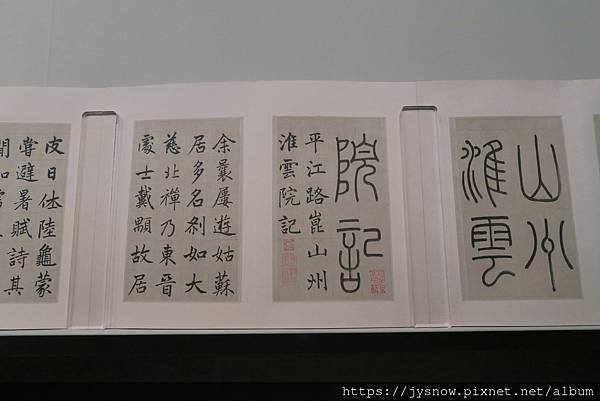 山州
淮雲
院記
平江路崑山州
淮雲院記
余曩屢遊姑蘇
居多名刹如大
慈北禪乃東晉
處士戴顒故居
皮日休陸龜蒙
嘗避暑賦詩其
https://jysnow.pixnet.net/album